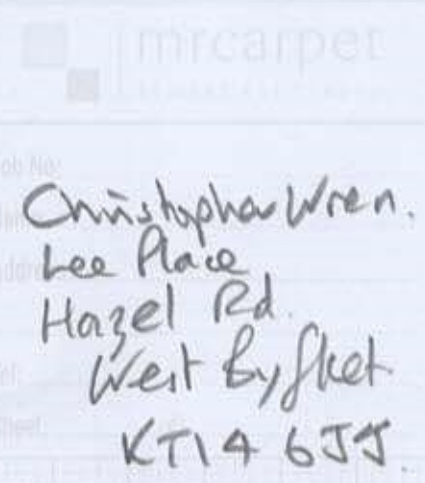 mrcarpet
Job No:
Christopher Wren.
Lee Place
Hazel Rd.
West Byfleet
KT14 6JJ.
Sheet: